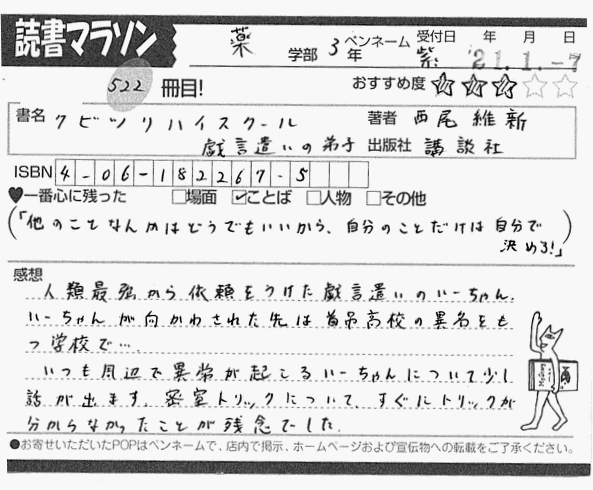 読書マラソン
薬 学部 3年 ペンネーム 紫 受付日 年 月 日
'21.1.-7
522 冊目! おすすめ度 ★★★☆☆
書名 クビツリハイスクール 著者 西尾維新
戯言遣いの弟子 出版社 講談社
ISBN 4-06-182267-5
♥一番心に残った □場面 ☑ことば □人物 □その他
(「他のことなんかはどうでもいいから、自分のことだけは自分で
決める!」)
感想
人類最強から依頼をうけた戯言遣いのいーちゃん.
いーちゃんが向かわされた先は首吊高校の異名をも
つ学校で….
いつも周辺で異常が起こるいーちゃんについて少し
話が出ます。密室トリックについて、すぐにトリックが
分からなかったことが残念でした.
●お寄せいただいたPOPはペンネームで、店内で掲示、ホームページおよび宣伝物への転載をご了承ください。